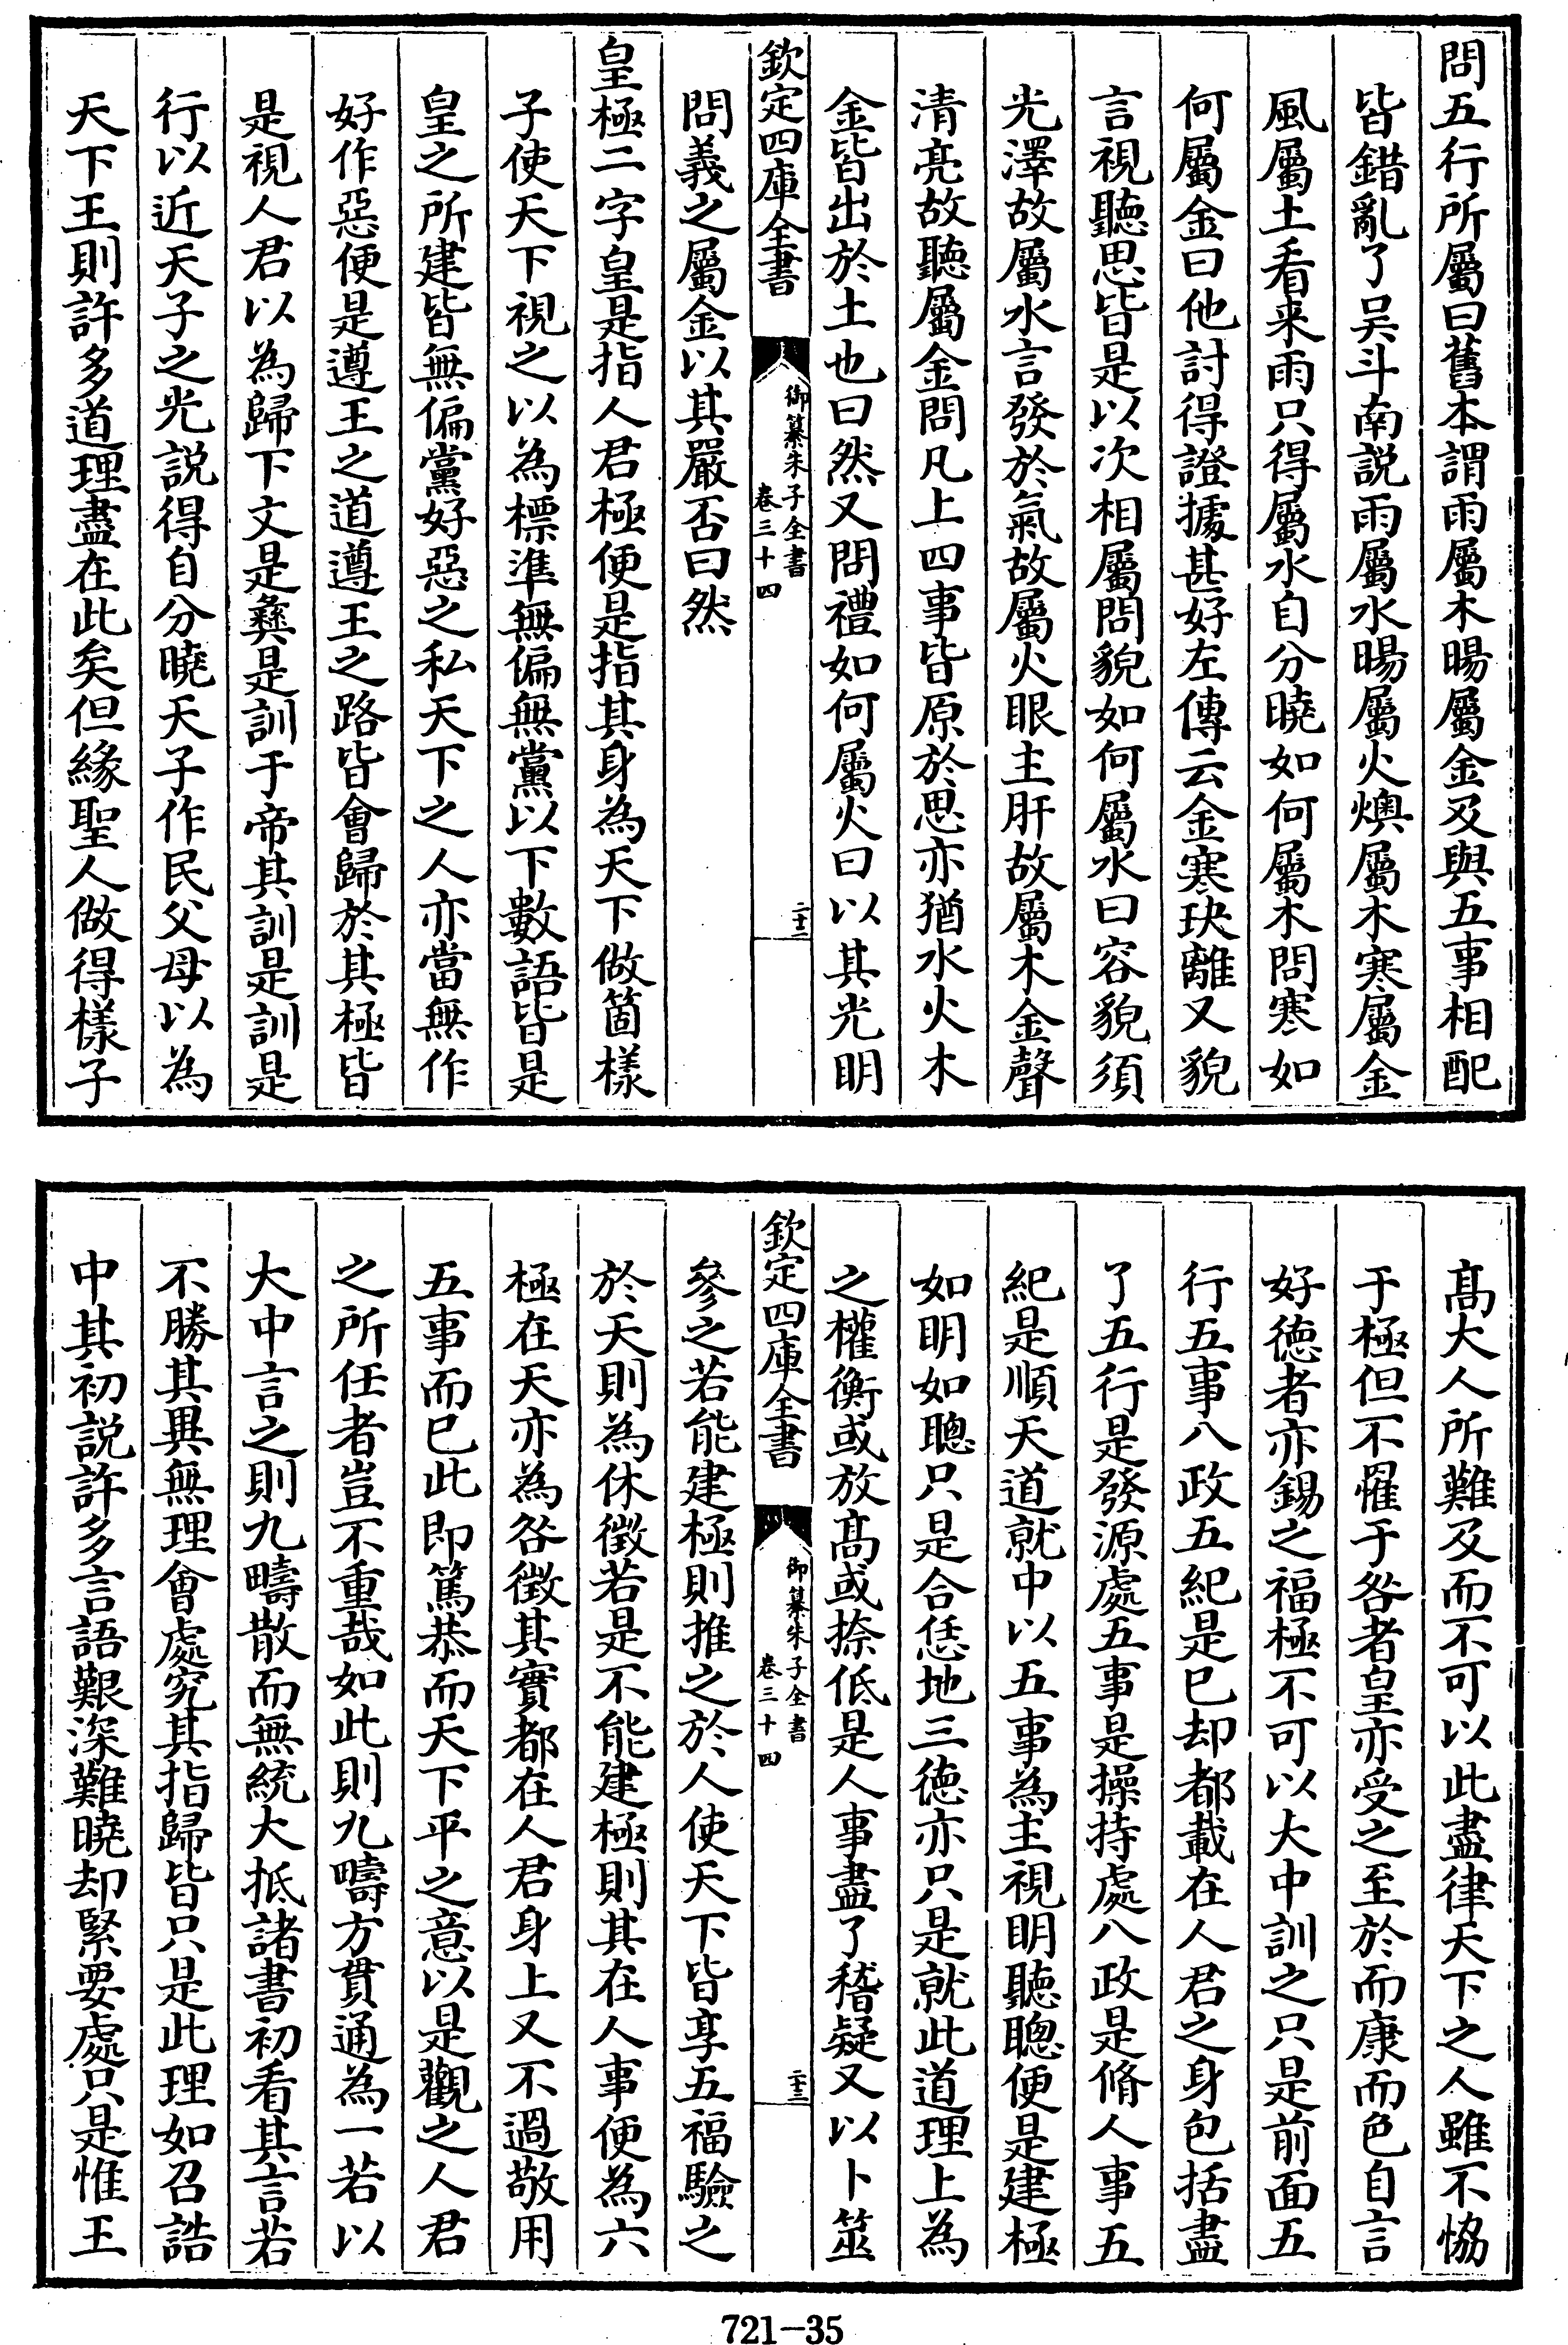 問五行所屬曰舊本謂雨屬木暘屬金及與五事相配
皆錯亂了吴斗南說雨屬水暘屬火燠屬木寒屬金
風屬土看来雨只得屬水自分曉如何屬木問寒如
何屬金曰他討得證據甚好左傳云金寒玦離又貌
言視聽思皆是以次相屬問貌如何屬水曰容貌須
光澤故屬水言發於氣故屬火眼主肝故屬木金聲
清亮故聽屬金問凡上四事皆原於思亦猶水火木
金皆出於土也曰然又問禮如何屬火曰以其光明
欽定四庫全書
御纂朱子全書
卷三十四
二十二
問義之屬金以其嚴否曰然
皇極二字皇是指人君極便是指其身為天下做箇樣
子使天下視之以為標準無偏無黨以下數語皆是
皇之所建皆無偏黨好惡之私天下之人亦當無作
好作惡便是遵王之道遵王之路皆會歸於其極皆
是視人君以為歸下文是彝是訓于帝其訓是訓是
行以近天子之光説得自分曉天子作民父母以為
天下王則許多道理盡在此矣但緣聖人做得樣子
髙大人所難及而不可以此盡律天下之人雖不恊
于極但不罹于咎者皇亦受之至於而康而色自言
好徳者亦錫之福極不可以大中訓之只是前面五
行五事八政五紀是已却都載在人君之身包括盡
了五行是發源處五事是操持處八政是脩人事五
紀是順天道就中以五事為主視明聽聰便是建極
如明如聰只是合恁地三徳亦只是就此道理上為
之權衡或放髙或捺低是人事盡了稽疑又以卜筮
欽定四庫全書
御纂朱子全書
卷三十四
二十三
參之若能建極則推之於人使天下皆享五福驗之
於天則為休徴若是不能建極則其在人事便為六
極在天亦為咎徴其實都在人君身上又不過敬用
五事而已此即篤恭而天下平之意以是觀之人君
之所任者豈不重哉如此則九疇方貫通為一若以
大中言之則九疇散而無統大抵諸書初看其言若
不勝其異無理會處究其指歸皆只是此理如召誥
中其初説許多言語艱深難曉却緊要處只是惟王
721-35